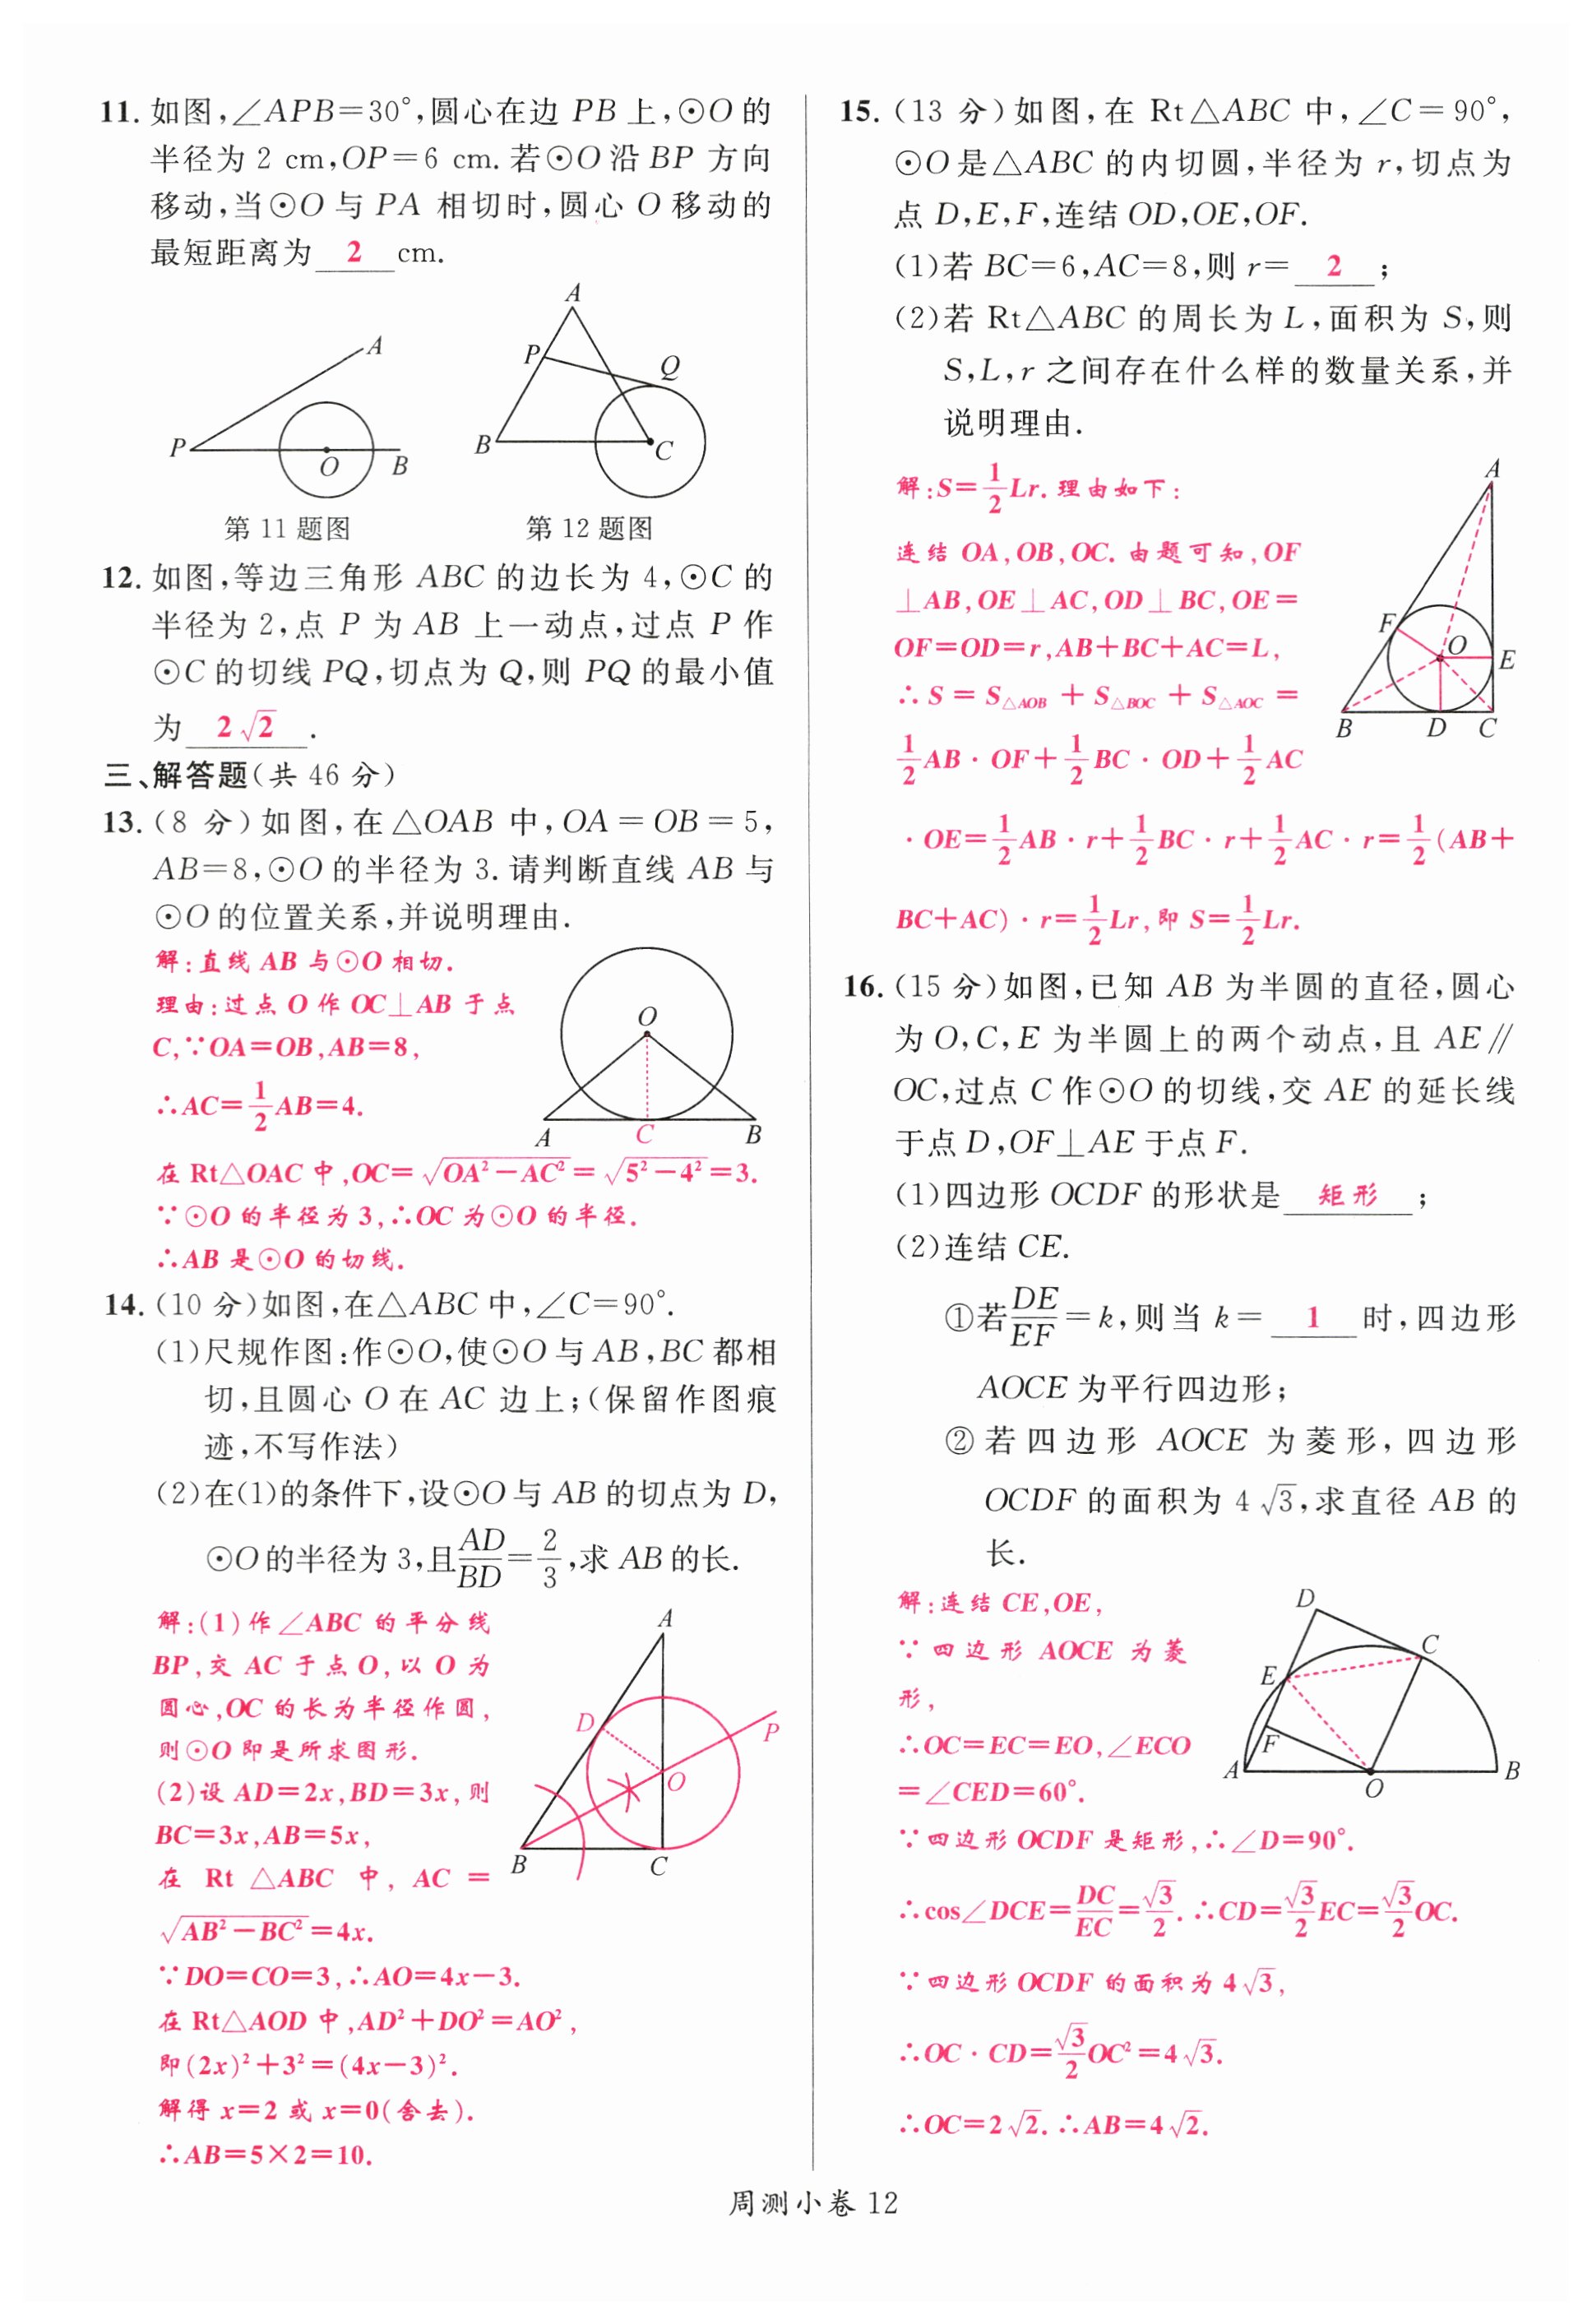 11. 如图,∠APB=30°,圆心在边 PB 上,⊙O 的
半径为 2 cm,OP=6 cm. 若⊙O 沿 BP 方向
移动,当⊙O 与 PA 相切时,圆心 O 移动的
最短距离为 2 cm.
A
P
O
B
第 11 题图
A
P
Q
B
C
第 12 题图
12. 如图,等边三角形 ABC 的边长为 4,⊙C 的
半径为 2,点 P 为 AB 上一动点,过点 P 作
⊙C 的切线 PQ,切点为 Q,则 PQ 的最小值
为 2√2 .
三、解答题(共 46 分)
13. (8 分)如图,在△OAB 中,OA=OB=5,
AB=8,⊙O 的半径为 3. 请判断直线 AB 与
⊙O 的位置关系,并说明理由.
解:直线 AB 与⊙O 相切.
理由:过点 O 作 OC⊥AB 于点
C,∵OA=OB,AB=8,
∴AC=1/2AB=4.
O
A
C
B
在 Rt△OAC 中,OC=√(OA²-AC²)=√(5²-4²)=3.
∵⊙O 的半径为 3,∴OC 为⊙O 的半径.
∴AB 是⊙O 的切线.
14. (10 分)如图,在△ABC 中,∠C=90°.
(1)尺规作图:作⊙O,使⊙O 与 AB,BC 都相
切,且圆心 O 在 AC 边上;(保留作图痕
迹,不写作法)
(2)在(1)的条件下,设⊙O 与 AB 的切点为 D,
⊙O 的半径为 3,且AD/BD=2/3,求 AB 的长.
解:(1)作∠ABC 的平分线
BP,交 AC 于点 O,以 O 为
圆心,OC 的长为半径作圆,
则⊙O 即是所求图形.
(2)设 AD=2x,BD=3x,则
BC=3x,AB=5x,
在 Rt△ABC 中,AC=
√(AB²-BC²)=4x.
A
D
P
O
B
C
∵DO=CO=3,∴AO=4x-3.
在 Rt△AOD 中,AD²+DO²=AO²,
即(2x)²+3²=(4x-3)².
解得 x=2 或 x=0(舍去).
∴AB=5×2=10.
15. (13 分)如图,在 Rt△ABC 中,∠C=90°,
⊙O 是△ABC 的内切圆,半径为 r,切点为
点 D,E,F,连结 OD,OE,OF.
(1)若 BC=6,AC=8,则 r= 2 ;
(2)若 Rt△ABC 的周长为 L,面积为 S,则
S,L,r 之间存在什么样的数量关系,并
说明理由.
解:S=1/2Lr. 理由如下:
连结 OA,OB,OC. 由题可知,OF
⊥AB,OE⊥AC,OD⊥BC,OE=
OF=OD=r,AB+BC+AC=L,
∴S=S△AOB+S△BOC+S△AOC=
1/2AB·OF+1/2BC·OD+1/2AC
·OE=1/2AB·r+1/2BC·r+1/2AC·r=1/2(AB+
BC+AC)·r=1/2Lr,即 S=1/2Lr.
A
F
O
E
B
D
C
16. (15 分)如图,已知 AB 为半圆的直径,圆心
为 O,C,E 为半圆上的两个动点,且 AE∥
OC,过点 C 作⊙O 的切线,交 AE 的延长线
于点 D,OF⊥AE 于点 F.
(1)四边形 OCDF 的形状是 矩形 ;
(2)连结 CE.
①若DE/EF=k,则当 k= 1 时,四边形
AOCE 为平行四边形;
②若四边形 AOCE 为菱形,四边形
OCDF 的面积为 4√3,求直径 AB 的
长.
解:连结 CE,OE,
∵四边形 AOCE 为菱
形,
∴OC=EC=EO,∠ECO
=∠CED=60°.
D
C
E
F
A
O
B
∵四边形 OCDF 是矩形,∴∠D=90°.
∴cos∠DCE=DC/EC=√3/2. ∴CD=√3/2EC=√3/2OC.
∵四边形 OCDF 的面积为 4√3,
∴OC·CD=√3/2OC²=4√3.
∴OC=2√2. ∴AB=4√2.
周测小卷 12